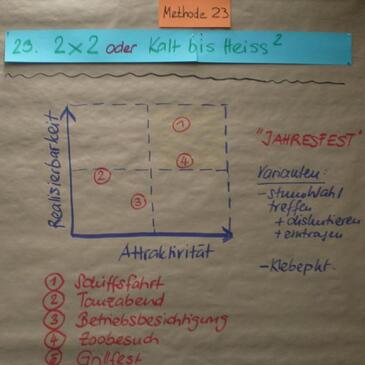 Methode 23
23. 2x2 oder Kalt bis Heiss²
Realisierbarkeit
1
2
4
3
Attraktivität
"JAHRESFEST"
Varianten:
treffen
+ diskutieren
+ eintragen
- Klebepkt.
1 Schiffsfahrt
2 Tanzabend
3 Betriebsbesichtigung
4 Zoobesuch
5 Grillfest